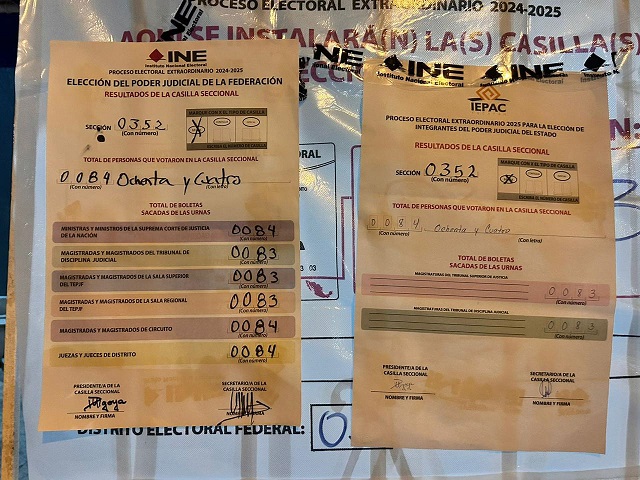 PROCESO ELECTORAL EXTRAORDINARIO 2024-2025
AQUÍ SE INSTALARÁ(N) LA(S) CASILLA(S)
INE
Instituto Nacional Electoral
PROCESO ELECTORAL EXTRAORDINARIO 2024-2025
ELECCIÓN DEL PODER JUDICIAL DE LA FEDERACIÓN
RESULTADOS DE LA CASILLA SECCIONAL
MARQUE CON X EL TIPO DE CASILLA
SECCIÓN 0352
(Con número)
ESCRIBA EL NÚMERO DE CASILLA
TOTAL DE PERSONAS QUE VOTARON EN LA CASILLA SECCIONAL
0084 Ochenta y Cuatro
(Con número) (Con letra)
TOTAL DE BOLETAS
SACADAS DE LAS URNAS
MINISTRAS Y MINISTROS DE LA SUPREMA CORTE DE JUSTICIA DE LA NACIÓN 0084
(Con número)
MAGISTRADAS Y MAGISTRADOS DEL TRIBUNAL DE DISCIPLINA JUDICIAL 0083
(Con número)
MAGISTRADAS Y MAGISTRADOS DE LA SALA SUPERIOR DEL TEPJF 0083
(Con número)
MAGISTRADAS Y MAGISTRADOS DE LA SALA REGIONAL DEL TEPJF 0083
(Con número)
MAGISTRADAS Y MAGISTRADOS DE CIRCUITO 0084
(Con número)
JUEZAS Y JUECES DE DISTRITO 0084
(Con número)
PRESIDENTE/A DE LA CASILLA SECCIONAL
SECRETARIO/A DE LA CASILLA SECCIONAL
NOMBRE Y FIRMA
NOMBRE Y FIRMA
INE
INE
INE
Instituto Nacional Electoral
IEPAC
PROCESO ELECTORAL EXTRAORDINARIO 2025 PARA LA ELECCIÓN DE
INTEGRANTES DEL PODER JUDICIAL DEL ESTADO
RESULTADOS DE LA CASILLA SECCIONAL
MARQUE CON X EL TIPO DE CASILLA
SECCIÓN 0352
(Con número)
ESCRIBA EL NÚMERO DE CASILLA
TOTAL DE PERSONAS QUE VOTARON EN LA CASILLA SECCIONAL
0084 Ochenta y Cuatro
(Con número) (Con letra)
TOTAL DE BOLETAS
SACADAS DE LAS URNAS
MAGISTRATURAS DEL TRIBUNAL SUPERIOR DE JUSTICIA
0083
(Con número)
MAGISTRATURAS DEL TRIBUNAL DE DISCIPLINA JUDICIAL
0083
(Con número)
PRESIDENTE/A DE LA CASILLA SECCIONAL
SECRETARIO/A DE LA CASILLA SECCIONAL
NOMBRE Y FIRMA
NOMBRE Y FIRMA
DISTRITO ELECTORAL FEDERAL: